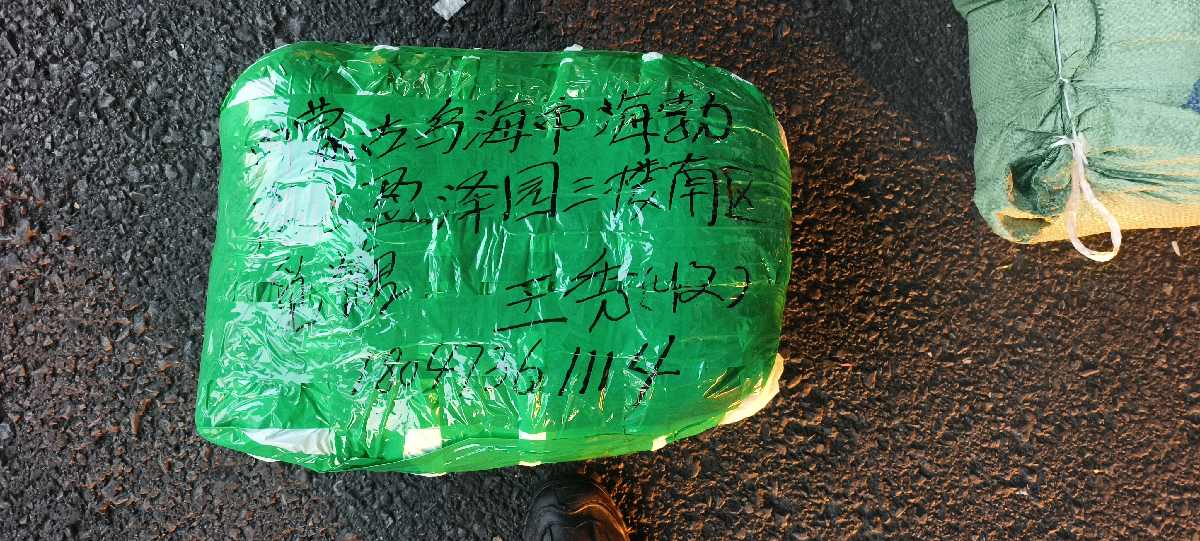 蒙古乌海市海勃
盈泽园三楼南区
王秀(收)
18047361114